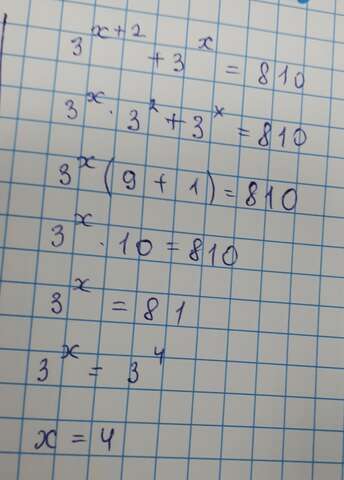 3^{x+2} + 3^x = 810
3^x · 3^2 + 3^x = 810
3^x (9 + 1) = 810
3^x · 10 = 810
3^x = 81
3^x = 3^4
x = 4